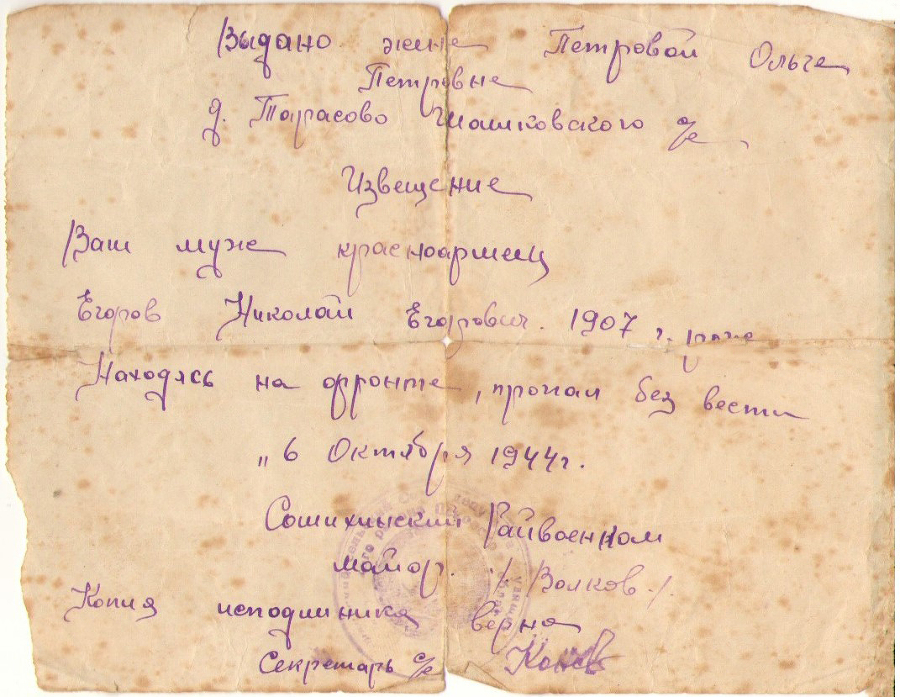 Выдано жене Петровой Ольге
Петровне
д. Тарасово Шашковского с/с
Извещение
Ваш муж красноармеец
Егоров Николай Егорович. 1907 г. рож
Находясь на фронте, пропал без вести
„6 Октября 1944г.
Сошихинский Райвоенком
майор. /. Волков ./.
Копия исподлиника верна
Секретарь с/с